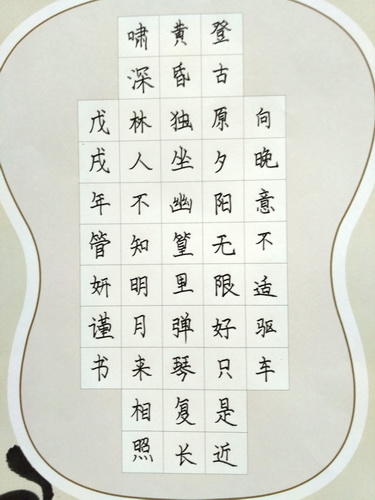 向晚意不适驱车
登古原夕阳无限好只是近
黄昏独坐幽篁里弹琴复长
啸深林人不知明月来相照
戊戌年管妍谨书